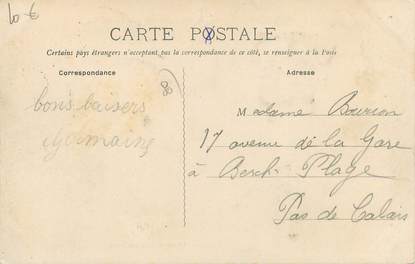 10 €
CARTE POSTALE
Certains pays étrangers n'acceptent pas la correspondance de ce côté, se renseigner à la Poste
Correspondance
Adresse
bons baisers
Germaine
Madame
17 avenue de la Gare
à Berck Plage
Pas de Calais